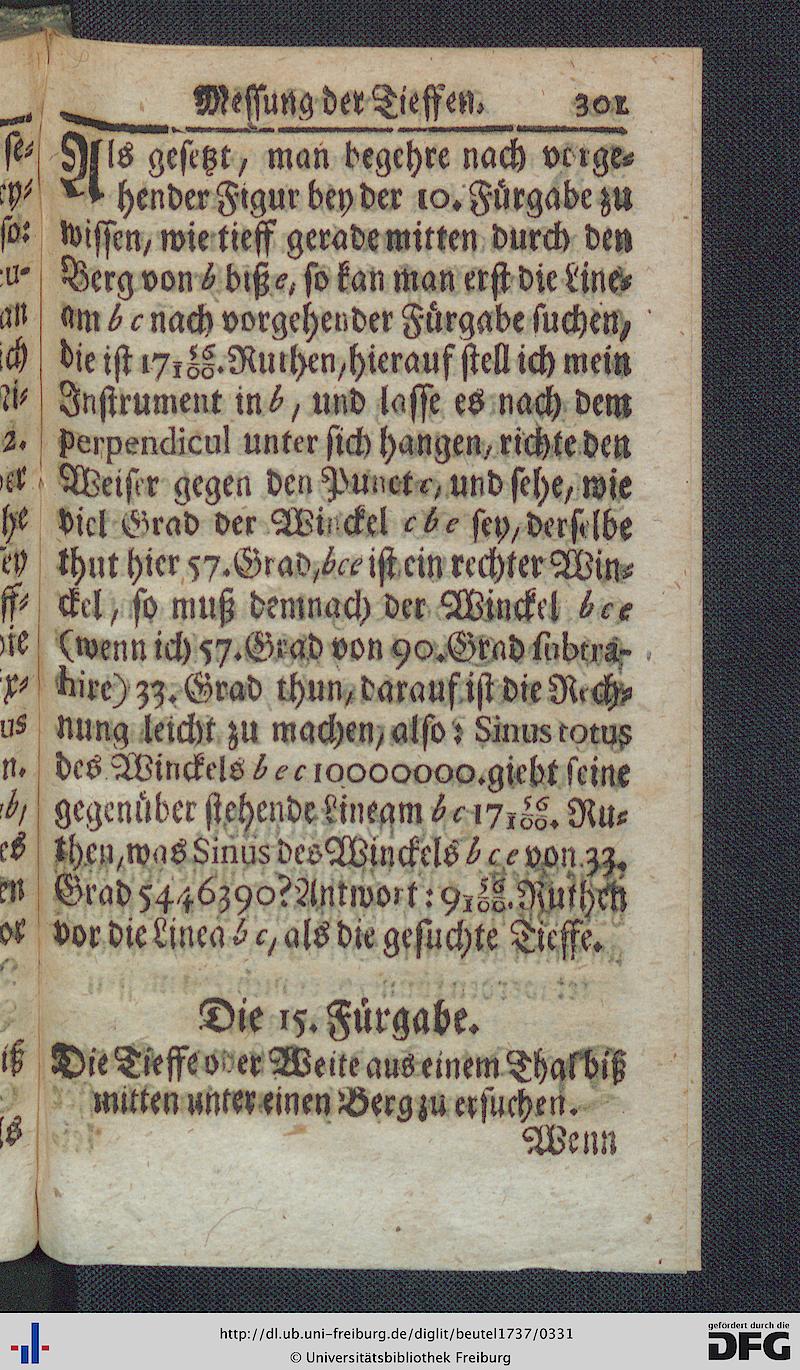 Messung der Tieffen. 301
Als gesetzt, man begehre nach vorge-
hender Figur bey der 10. Fürgabe zu
wissen, wie tieff gerade mitten durch den
Berg von b biß e, so kan man erst die Line-
am b c nach vorgehender Fürgabe suchen,
die ist 17 56/100. Ruthen, hierauf stell ich mein
Instrument in b, und lasse es nach dem
perpendicul unter sich hangen, richte den
Weiser gegen den Punct c, und sehe, wie
viel Grad der Winckel c b e sey, derselbe
thut hier 57. Grad, bce ist ein rechter Win-
ckel, so muß demnach der Winckel b c e
(wenn ich 57. Grad von 90. Grad subtra-
hire) 33. Grad thun, darauf ist die Rech-
nung leicht zu machen, also: Sinus totus
des Winckels b e c 10000000. giebt seine
gegenüber stehende Lineam b c 17 56/100. Ru-
then, was Sinus des Winckels b c e von 33.
Grad 5446390? Antwort: 9 56/100. Ruthen
vor die Linea b e, als die gesuchte Tieffe.
Die 15. Fürgabe.
Die Tieffe oder Weite aus einem Thal biß
mitten unter einen Berg zu ersuchen.
Wenn
http://dl.ub.uni-freiburg.de/diglit/beutel1737/0331
© Universitätsbibliothek Freiburg
gefördert durch die
DFG